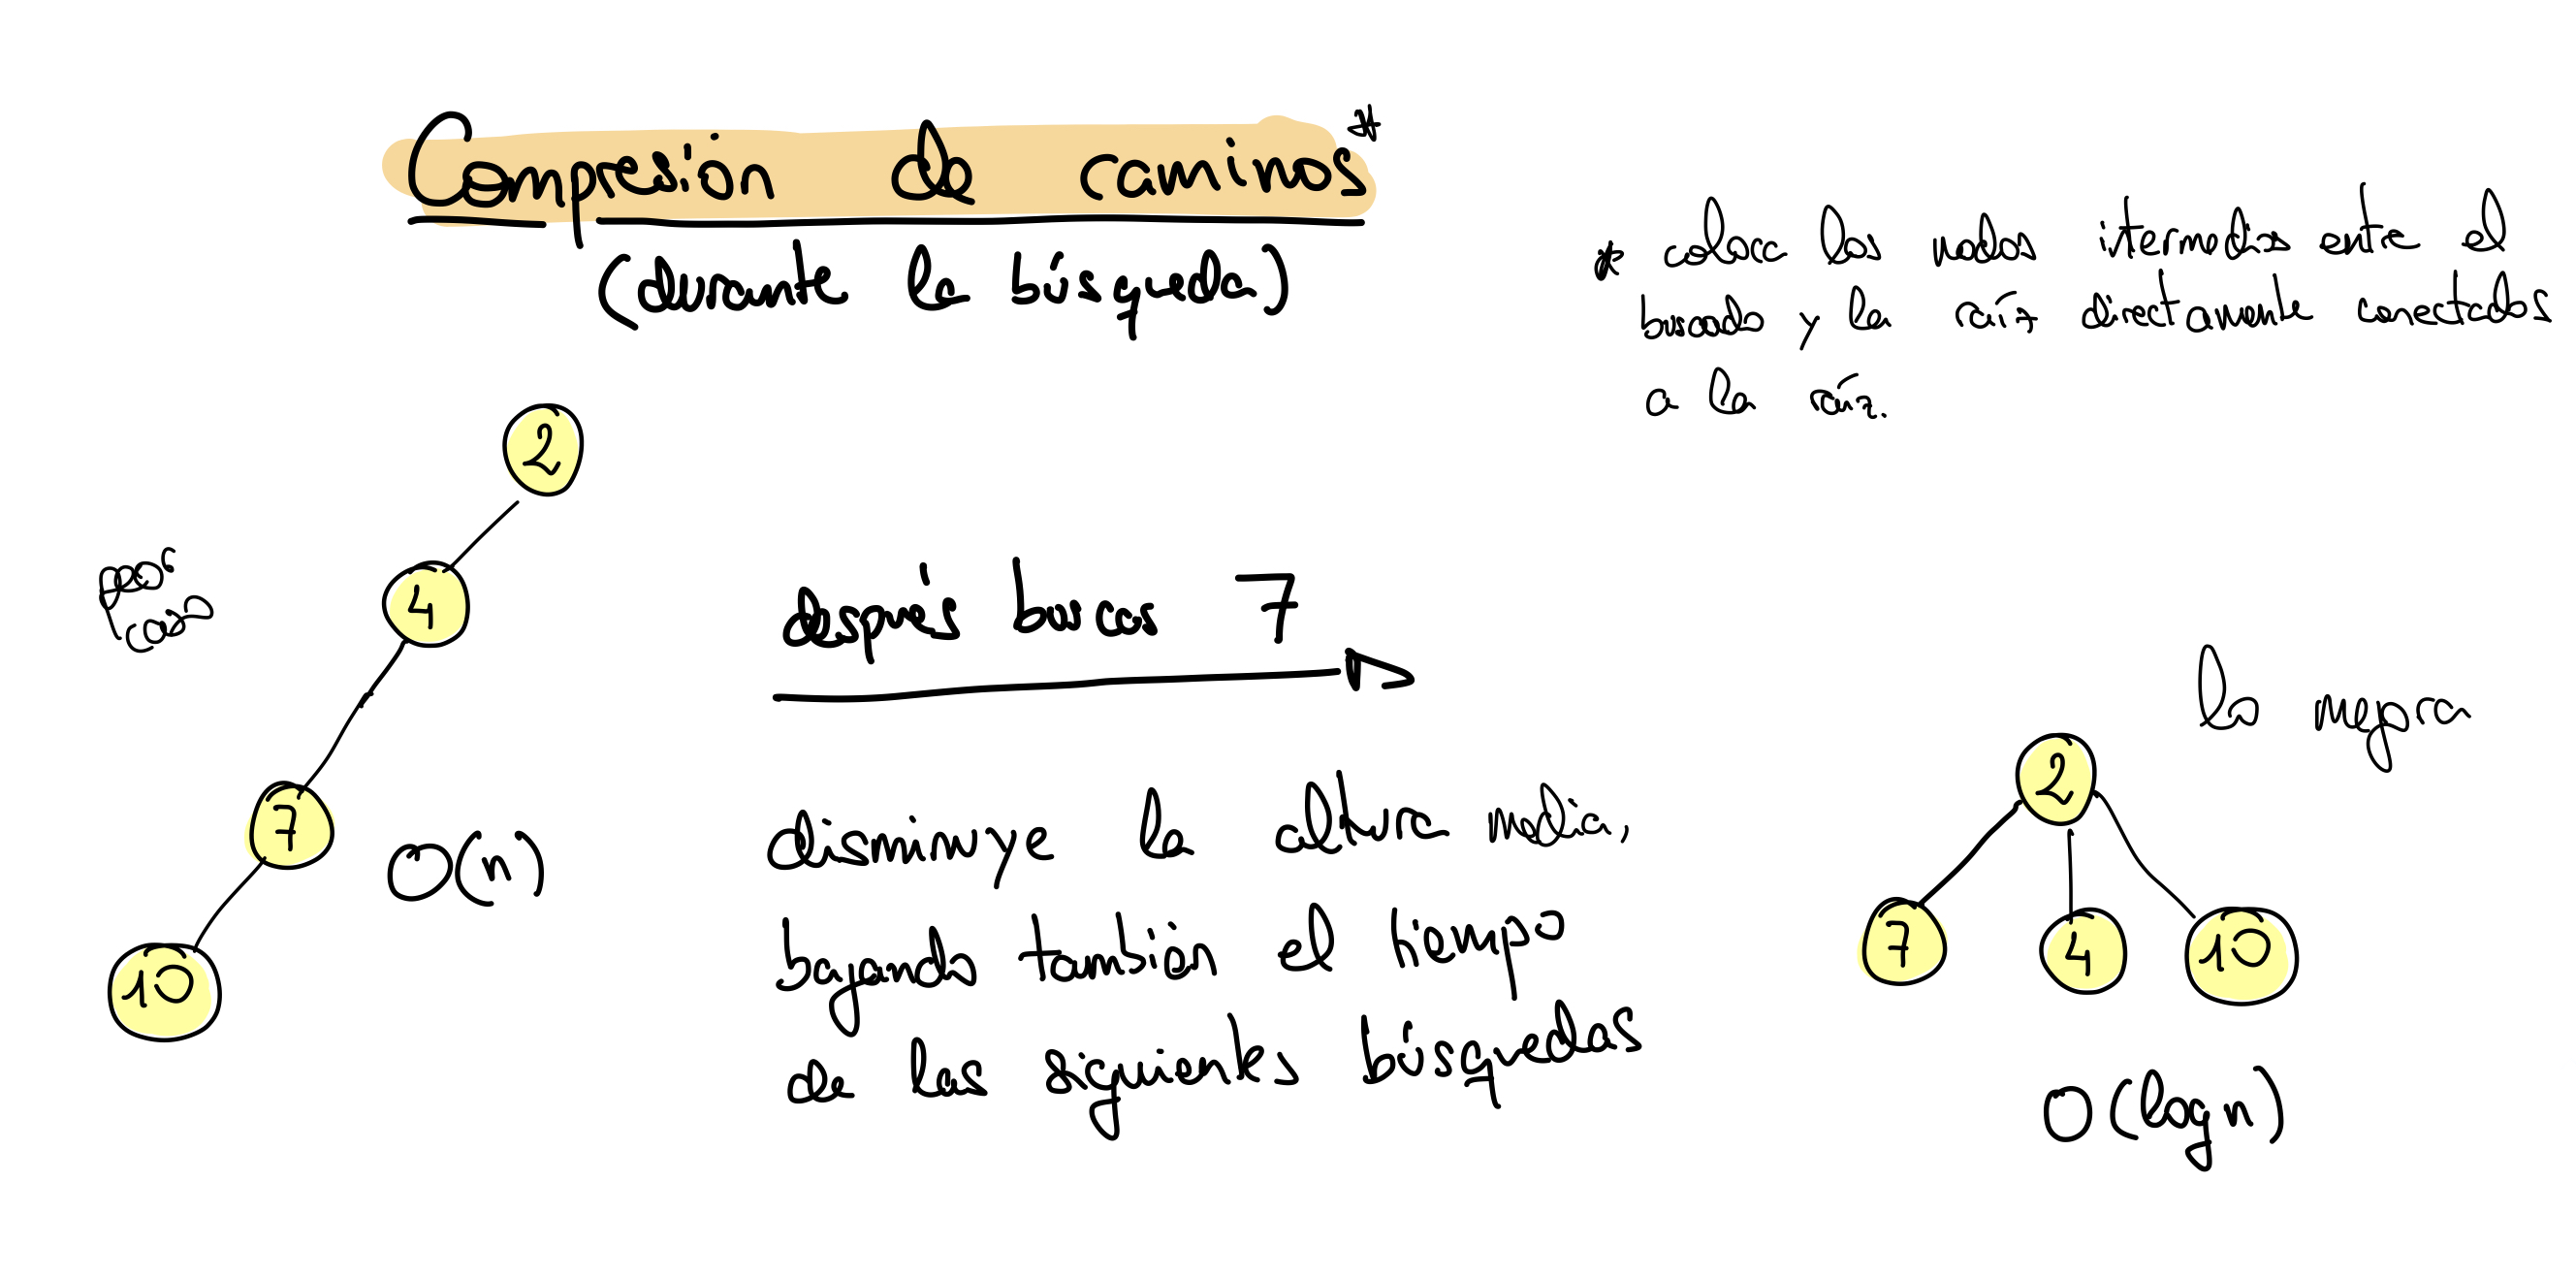 Compresión de caminos*
(durante la búsqueda)
* coloca los nodos intermedios entre el
buscado y la raíz directamente conectados
a la raíz.
peor
caso
2
4
7
10
O(n)
después buscas 7
disminuye la altura media,
bajando también el tiempo
de las siguientes búsquedas
lo mejora
2
7 4 10
O(log n)